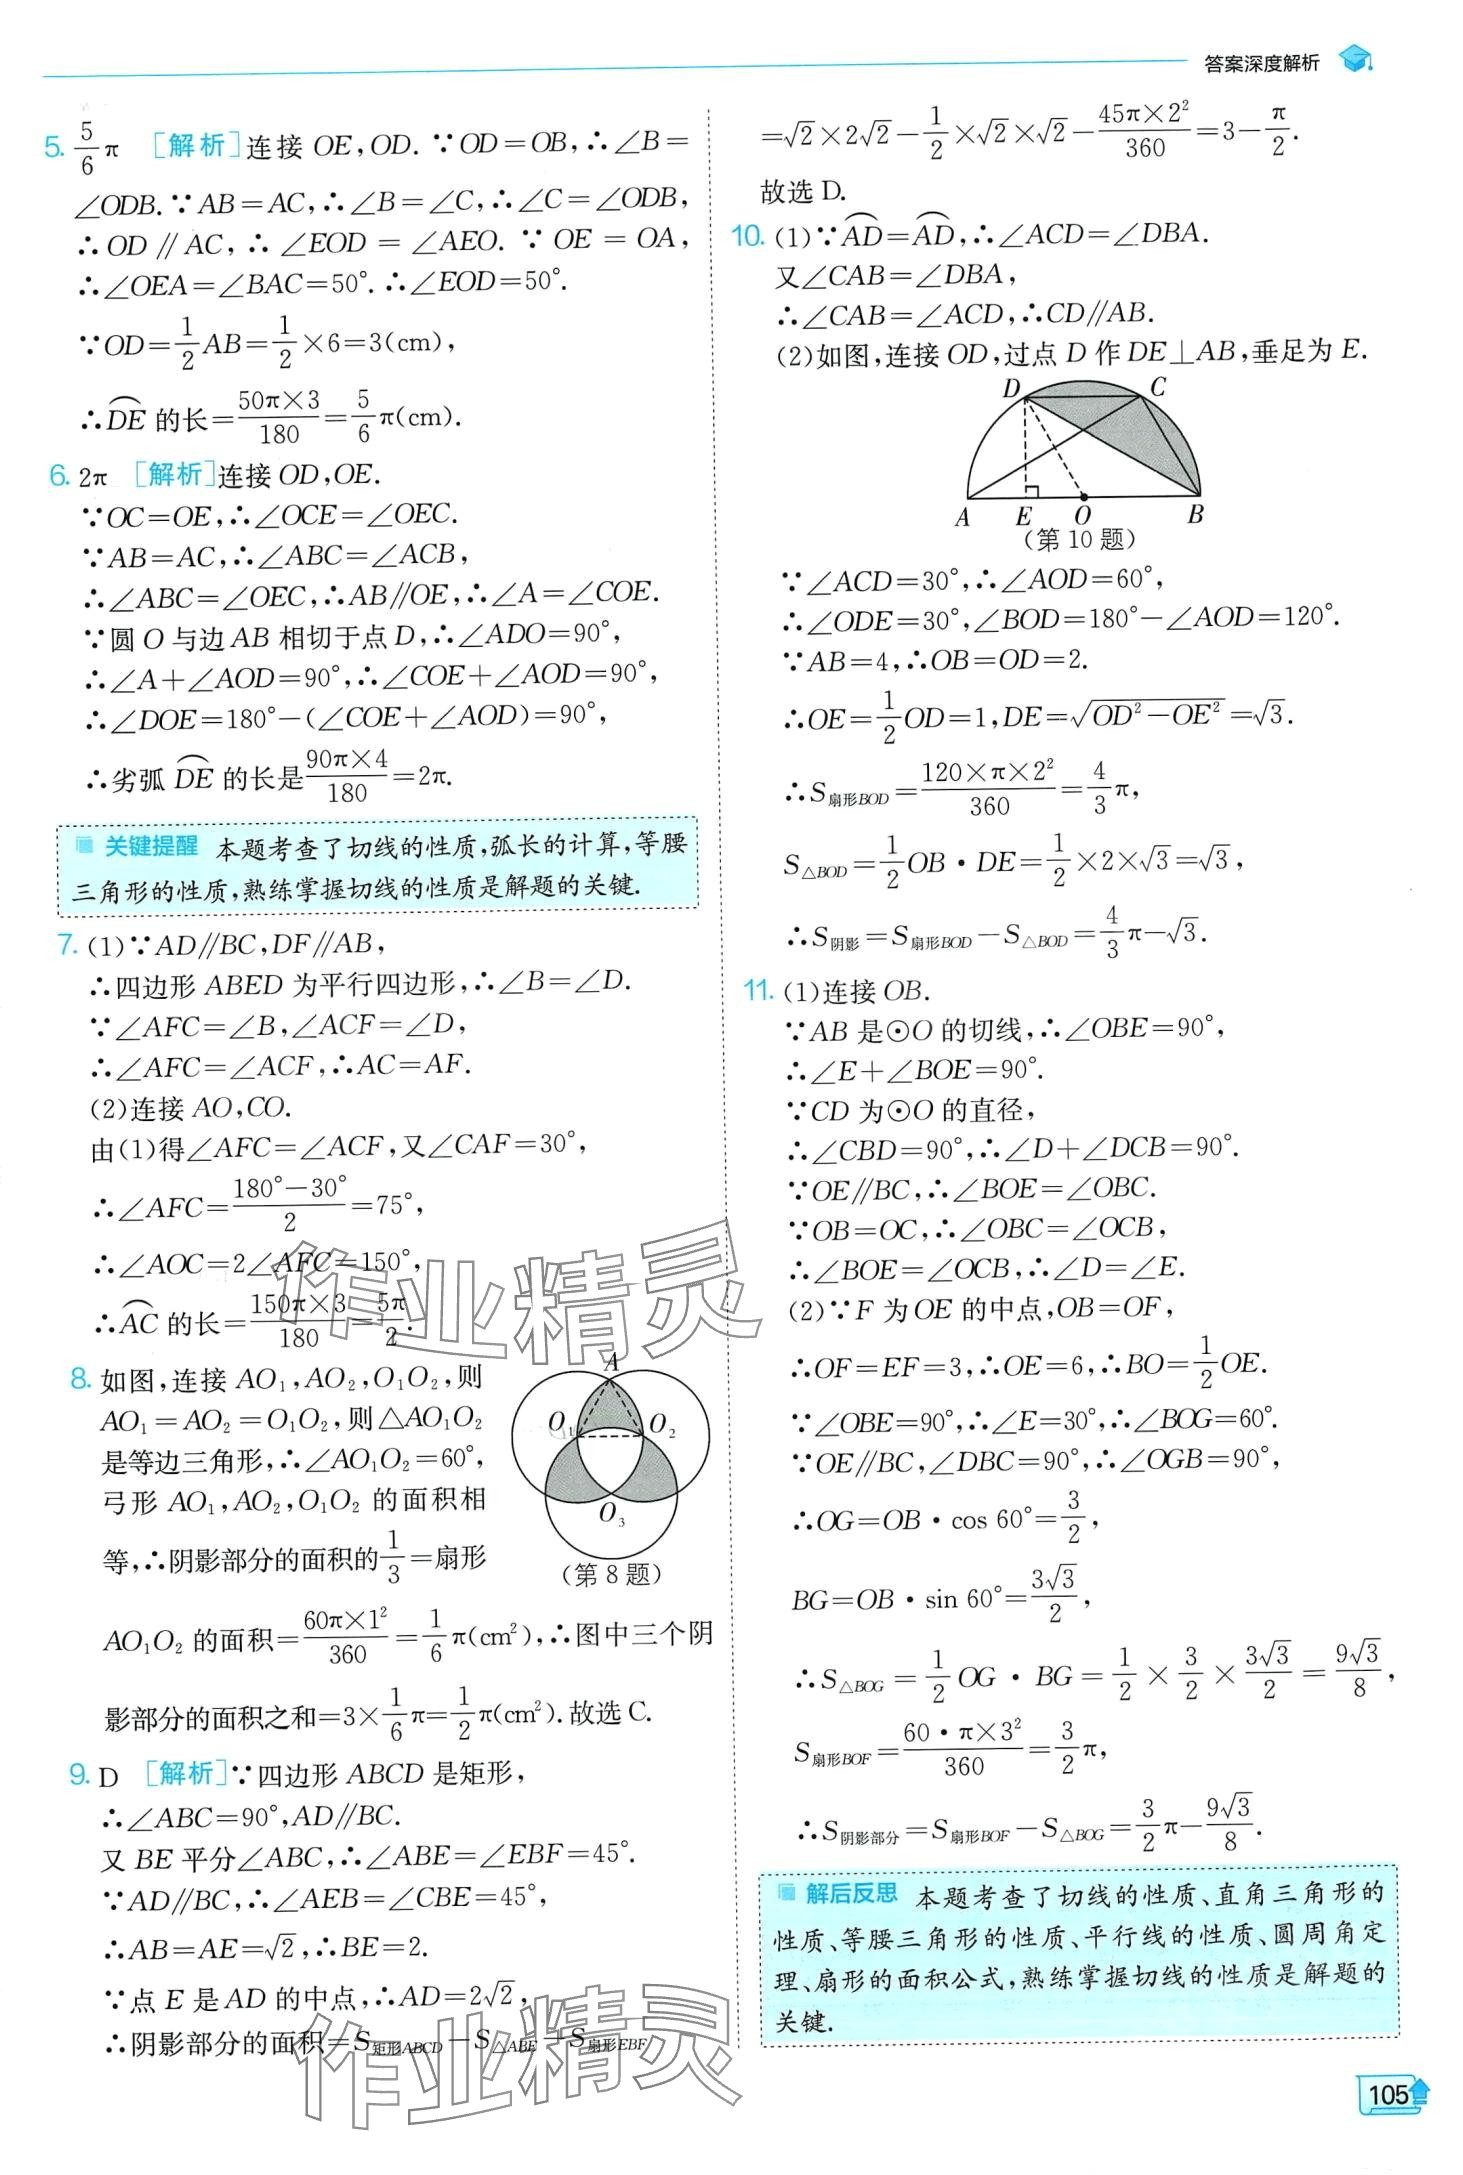 答案深度解析
5. 5/6 π [解析]连接 OE,OD. ∵OD=OB,∴∠B=
∠ODB.∵AB=AC,∴∠B=∠C,∴∠C=∠ODB,
∴OD∥AC,∴∠EOD=∠AEO.∵OE=OA,
∴∠OEA=∠BAC=50°.∴∠EOD=50°.
∵OD=1/2 AB=1/2×6=3(cm),
∴⌒DE 的长=50π×3/180=5/6 π(cm).
6. 2π [解析]连接 OD,OE.
∵OC=OE,∴∠OCE=∠OEC.
∵AB=AC,∴∠ABC=∠ACB,
∴∠ABC=∠OEC,∴AB∥OE,∴∠A=∠COE.
∵圆 O 与边 AB 相切于点 D,∴∠ADO=90°,
∴∠A+∠AOD=90°,∴∠COE+∠AOD=90°,
∴∠DOE=180°-(∠COE+∠AOD)=90°,
∴劣弧 ⌒DE 的长是90π×4/180=2π.
关键提醒 本题考查了切线的性质,弧长的计算,等腰
三角形的性质,熟练掌握切线的性质是解题的关键.
7. (1)∵AD∥BC,DF∥AB,
∴四边形 ABED 为平行四边形,∴∠B=∠D.
∵∠AFC=∠B,∠ACF=∠D,
∴∠AFC=∠ACF,∴AC=AF.
(2)连接 AO,CO.
由(1)得∠AFC=∠ACF,又∠CAF=30°,
∴∠AFC=(180°-30°)/2=75°,
∴∠AOC=2∠AFC=150°,
∴⌒AC 的长=150π×3/180=5π/2.
8. 如图,连接 AO₁,AO₂,O₁O₂,则
AO₁=AO₂=O₁O₂,则△AO₁O₂
是等边三角形,∴∠AO₁O₂=60°,
弓形 AO₁,AO₂,O₁O₂ 的面积相
等,∴阴影部分的面积的1/3=扇形
A
O₁
O₂
O₃
(第 8 题)
AO₁O₂ 的面积=60π×1²/360=1/6 π(cm²),∴图中三个阴
影部分的面积之和=3×1/6 π=1/2 π(cm²).故选C.
9. D [解析]∵四边形 ABCD 是矩形,
∴∠ABC=90°,AD∥BC.
又 BE 平分∠ABC,∴∠ABE=∠EBF=45°.
∵AD∥BC,∴∠AEB=∠CBE=45°,
∴AB=AE=√2,∴BE=2.
∵点 E 是 AD 的中点,∴AD=2√2,
∴阴影部分的面积=S矩形ABCD-S△ABE-S扇形EBF
=√2×2√2-1/2×√2×√2-45π×2²/360=3-π/2.
故选 D.
10. (1)∵⌒AD=⌒AD,∴∠ACD=∠DBA.
又∠CAB=∠DBA,
∴∠CAB=∠ACD,∴CD∥AB.
(2)如图,连接 OD,过点 D 作 DE⊥AB,垂足为 E.
D
C
A
E
O
B
(第 10 题)
∵∠ACD=30°,∴∠AOD=60°,
∴∠ODE=30°,∠BOD=180°-∠AOD=120°.
∵AB=4,∴OB=OD=2.
∴OE=1/2 OD=1,DE=√(OD²-OE²)=√3.
∴S扇形BOD=120×π×2²/360=4/3 π,
S△BOD=1/2 OB·DE=1/2×2×√3=√3,
∴S阴影=S扇形BOD-S△BOD=4/3 π-√3.
11. (1)连接 OB.
∵AB 是⊙O 的切线,∴∠OBE=90°,
∴∠E+∠BOE=90°.
∵CD 为⊙O 的直径,
∴∠CBD=90°,∴∠D+∠DCB=90°.
∵OE∥BC,∴∠BOE=∠OBC.
∵OB=OC,∴∠OBC=∠OCB,
∴∠BOE=∠OCB,∴∠D=∠E.
(2)∵F 为 OE 的中点,OB=OF,
∴OF=EF=3,∴OE=6,∴BO=1/2 OE.
∵∠OBE=90°,∴∠E=30°,∴∠BOG=60°.
∵OE∥BC,∠DBC=90°,∴∠OGB=90°,
∴OG=OB·cos 60°=3/2,
BG=OB·sin 60°=3√3/2,
∴S△BOG=1/2 OG·BG=1/2×3/2×3√3/2=9√3/8,
S扇形BOF=60·π×3²/360=3/2 π,
∴S阴影部分=S扇形BOF-S△BOG=3/2 π-9√3/8.
解后反思 本题考查了切线的性质、直角三角形的
性质、等腰三角形的性质、平行线的性质、圆周角定
理、扇形的面积公式,熟练掌握切线的性质是解题的
关键.
105
作业精灵
作业精灵